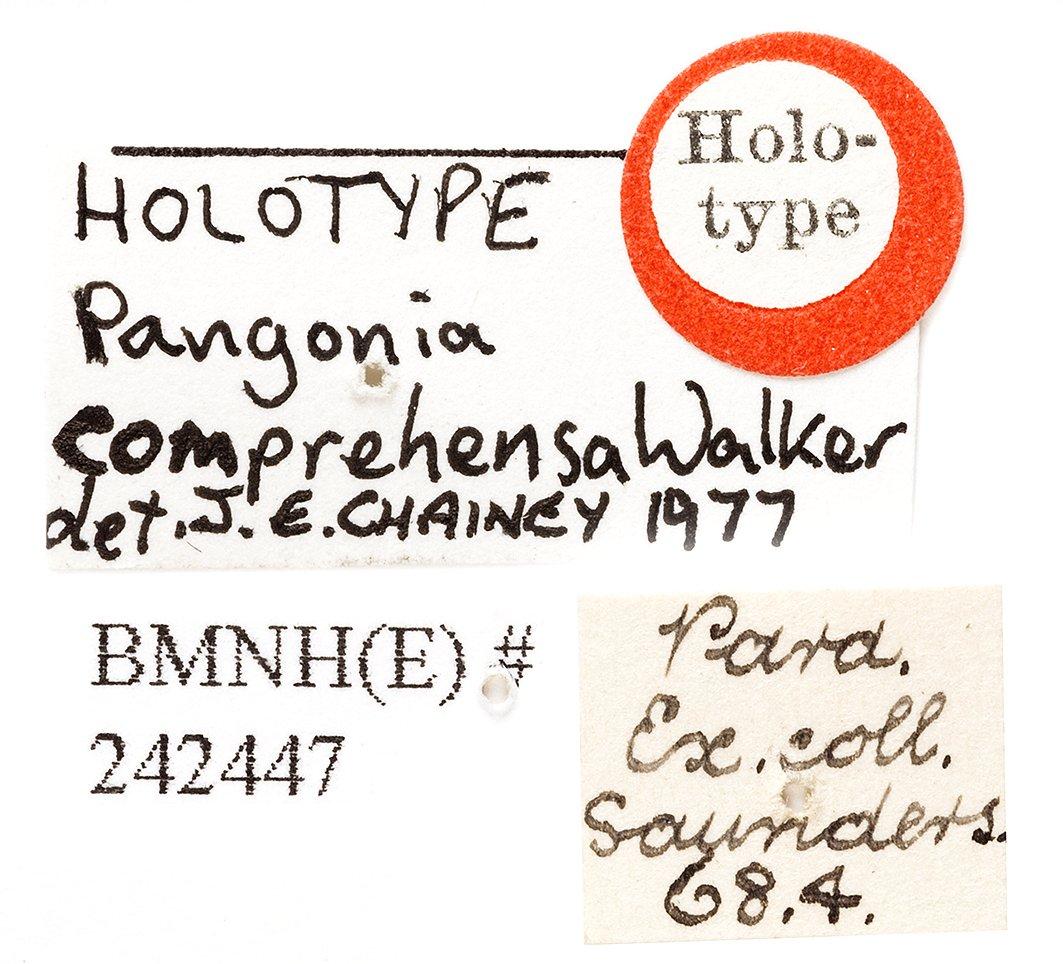 Holo-
type
HOLOTYPE
Pangonia
comprehensa Walker
det. J. E. CHAINEY 1977
BMNH(E) #
242447
Para.
Ex. coll.
Saunders.
68.4.